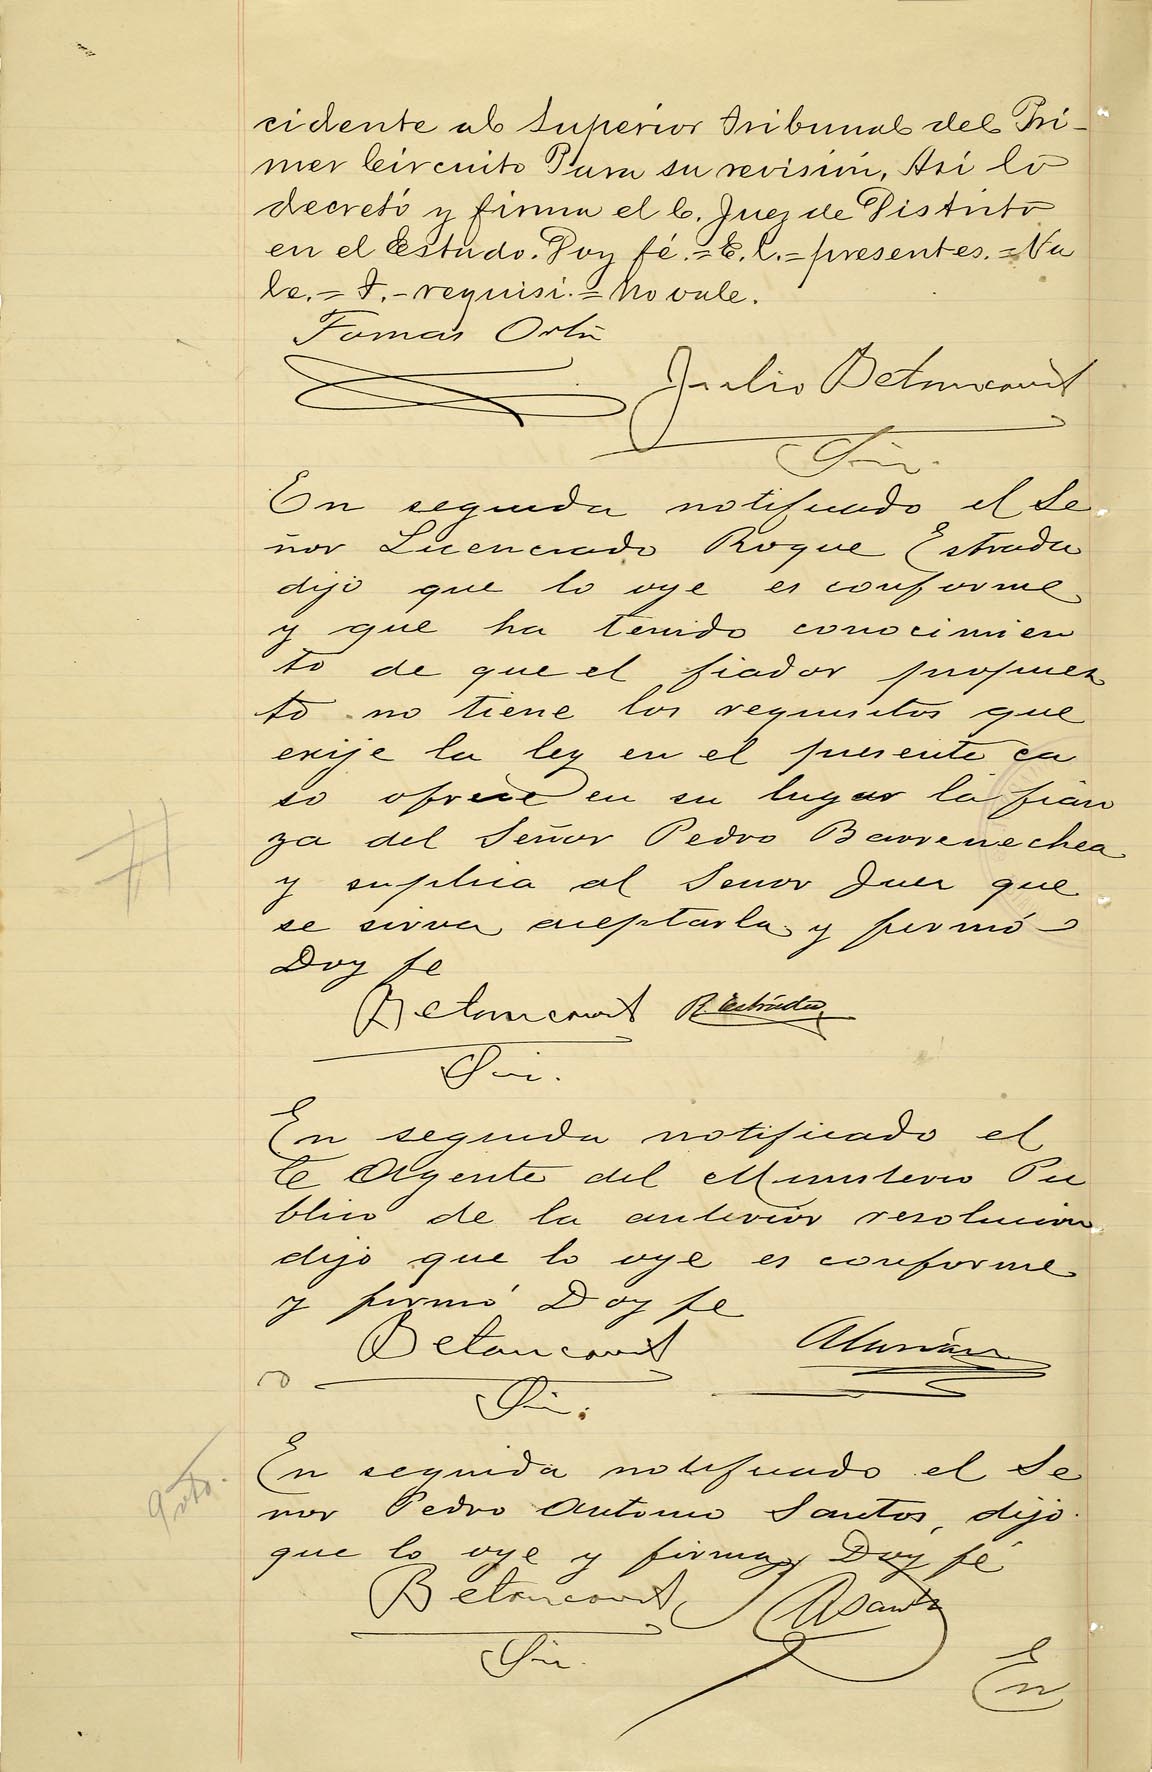 cidente al Superior Tribunal del Pri-
mer Circuito Para su revisión, Asi lo
decretó y firma el C. Juez de Distrito
en el Estado. Doy fé.=E. l.=presentes.=Va
le.=T.-requisi.=No vale.
Tomas Ortiz
Julio Betancourt
Srio.
En seguida notificado el Se
ñor Licenciado Roque Estrada
dijo que lo oye es conforme
y que ha tenido conocimien
to de que el fiador propues
to no tiene los requisitos que
exije la ley en el presente ca
so ofrece en su lugar la fian
za del Señor Pedro Barrenechea
y suplica al Señor Juez que
se sirva aceptarla y firmó
Doy fe
Betancourt R. Estrada
Srio.
En seguida notificado el
C Agente del Ministerio Pu
blico de la anterior resolucion
dijo que lo oye es conforme
y firmó Doy fe
Betancourt Alemán
Srio.
En seguida notificado el Se
ñor Pedro Antonio Santos, dijo
que lo oye y firma, Doy fé
Betancourt
Srio.
En